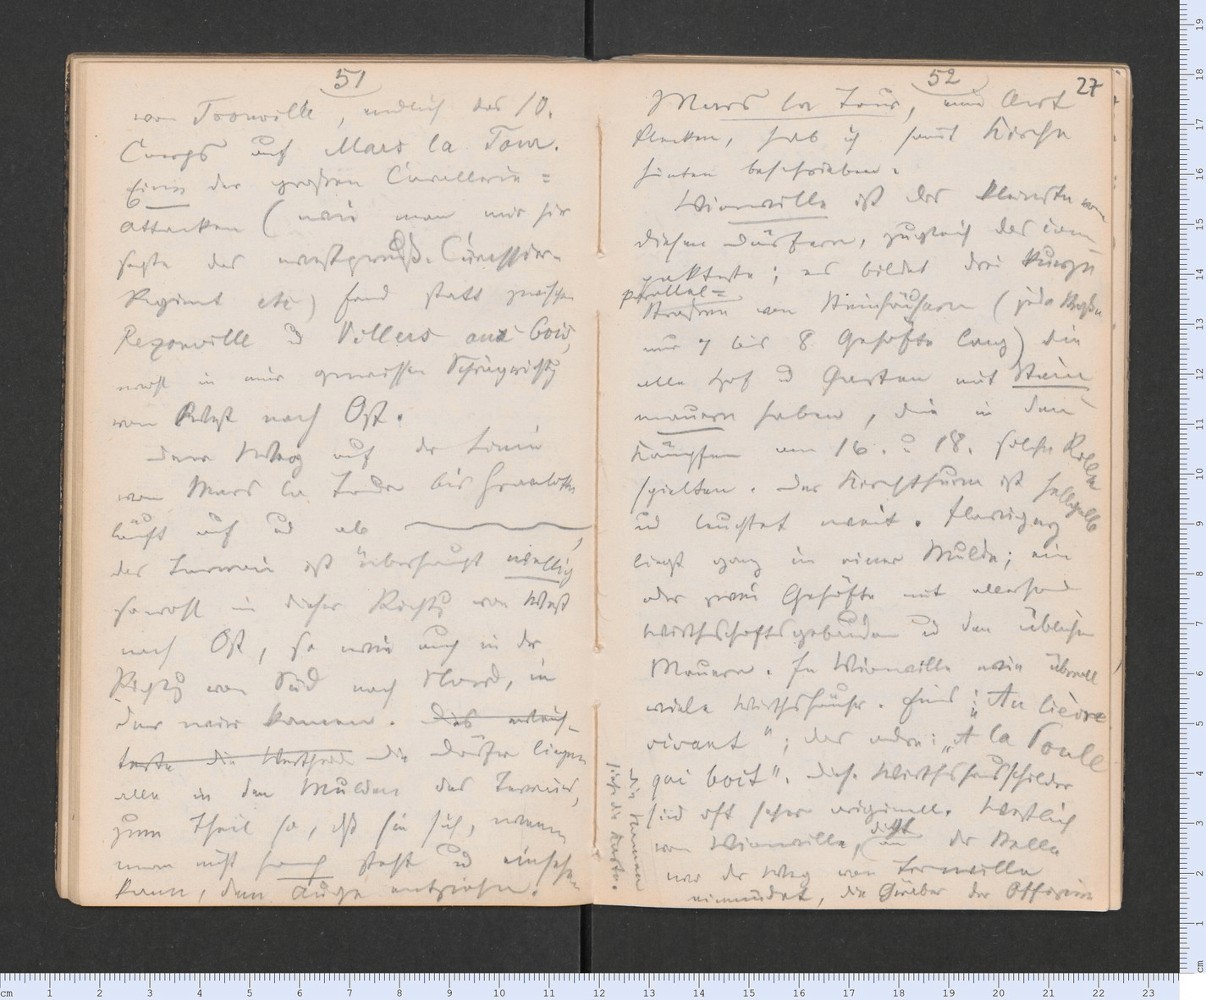 51
von Tronville, endlich das 10.
Corps auf Mars la Tour.
Eine der großen Cavallerie=
attacken (wie man mir hier
sagte des westpreuß. Cürassier-
Regiment etc) fand statt zwischen
Rezonville u Villers aux bois,
wohl in einer gewissen Schrägrichtg
von West nach Ost.
Der Weg auf der Linie
von Mars la Tour bis Gravelotte
läuft auf und ab
das Terrain ist überhaupt wellig
sowohl in dieser Richtg von West
nach Ost, so wie auch in der
Richtg von Süd nach Nord, in
der wir kamen. Dies erleich-
terte die die Dörfer liegen
alle in den Mulden des Terrains,
zum Theil so, daß sie sich, wenn
man nicht hoch steht und einsehen
kann, dem Auge entziehn.
52
27
Mars la Tour, ein Ort
Flecken, hab ich sammt Kirche
hinten beschrieben.
Vionville ist das kleinste von
diesen Dörfern, zugleich das com-
pakteste; es bildet drei kurze
parallel=
Straßen von Steinhäusern (jede Straße
nur 7 bis 8 Gehöfte lang) die
alle Hof u Garten mit Stein
mauern haben, die in den
Kämpfen am 16. u. 18. solche Rolle
spielten. Der Kirchthurm ist hellgelb
und leuchtet weit. Flavigny
liegt ganz in einer Mulde; ein
oder zwei Gehöfte mit allerhand
Wirthschaftsgebäuden und den üblichen
Mauern. In Vionville wie überall
viele Wirthshäuser. Eins: „Au lièvre
vivant"; das andre: „A la Poule
qui boit". Diese Wirthshausschilder
sind oft sehr originell. Westlich
von Vionville, dicht an der Stelle
wo der Weg von Tronville
einmündet, die Gräber der Offiziere
siehe die Karte.